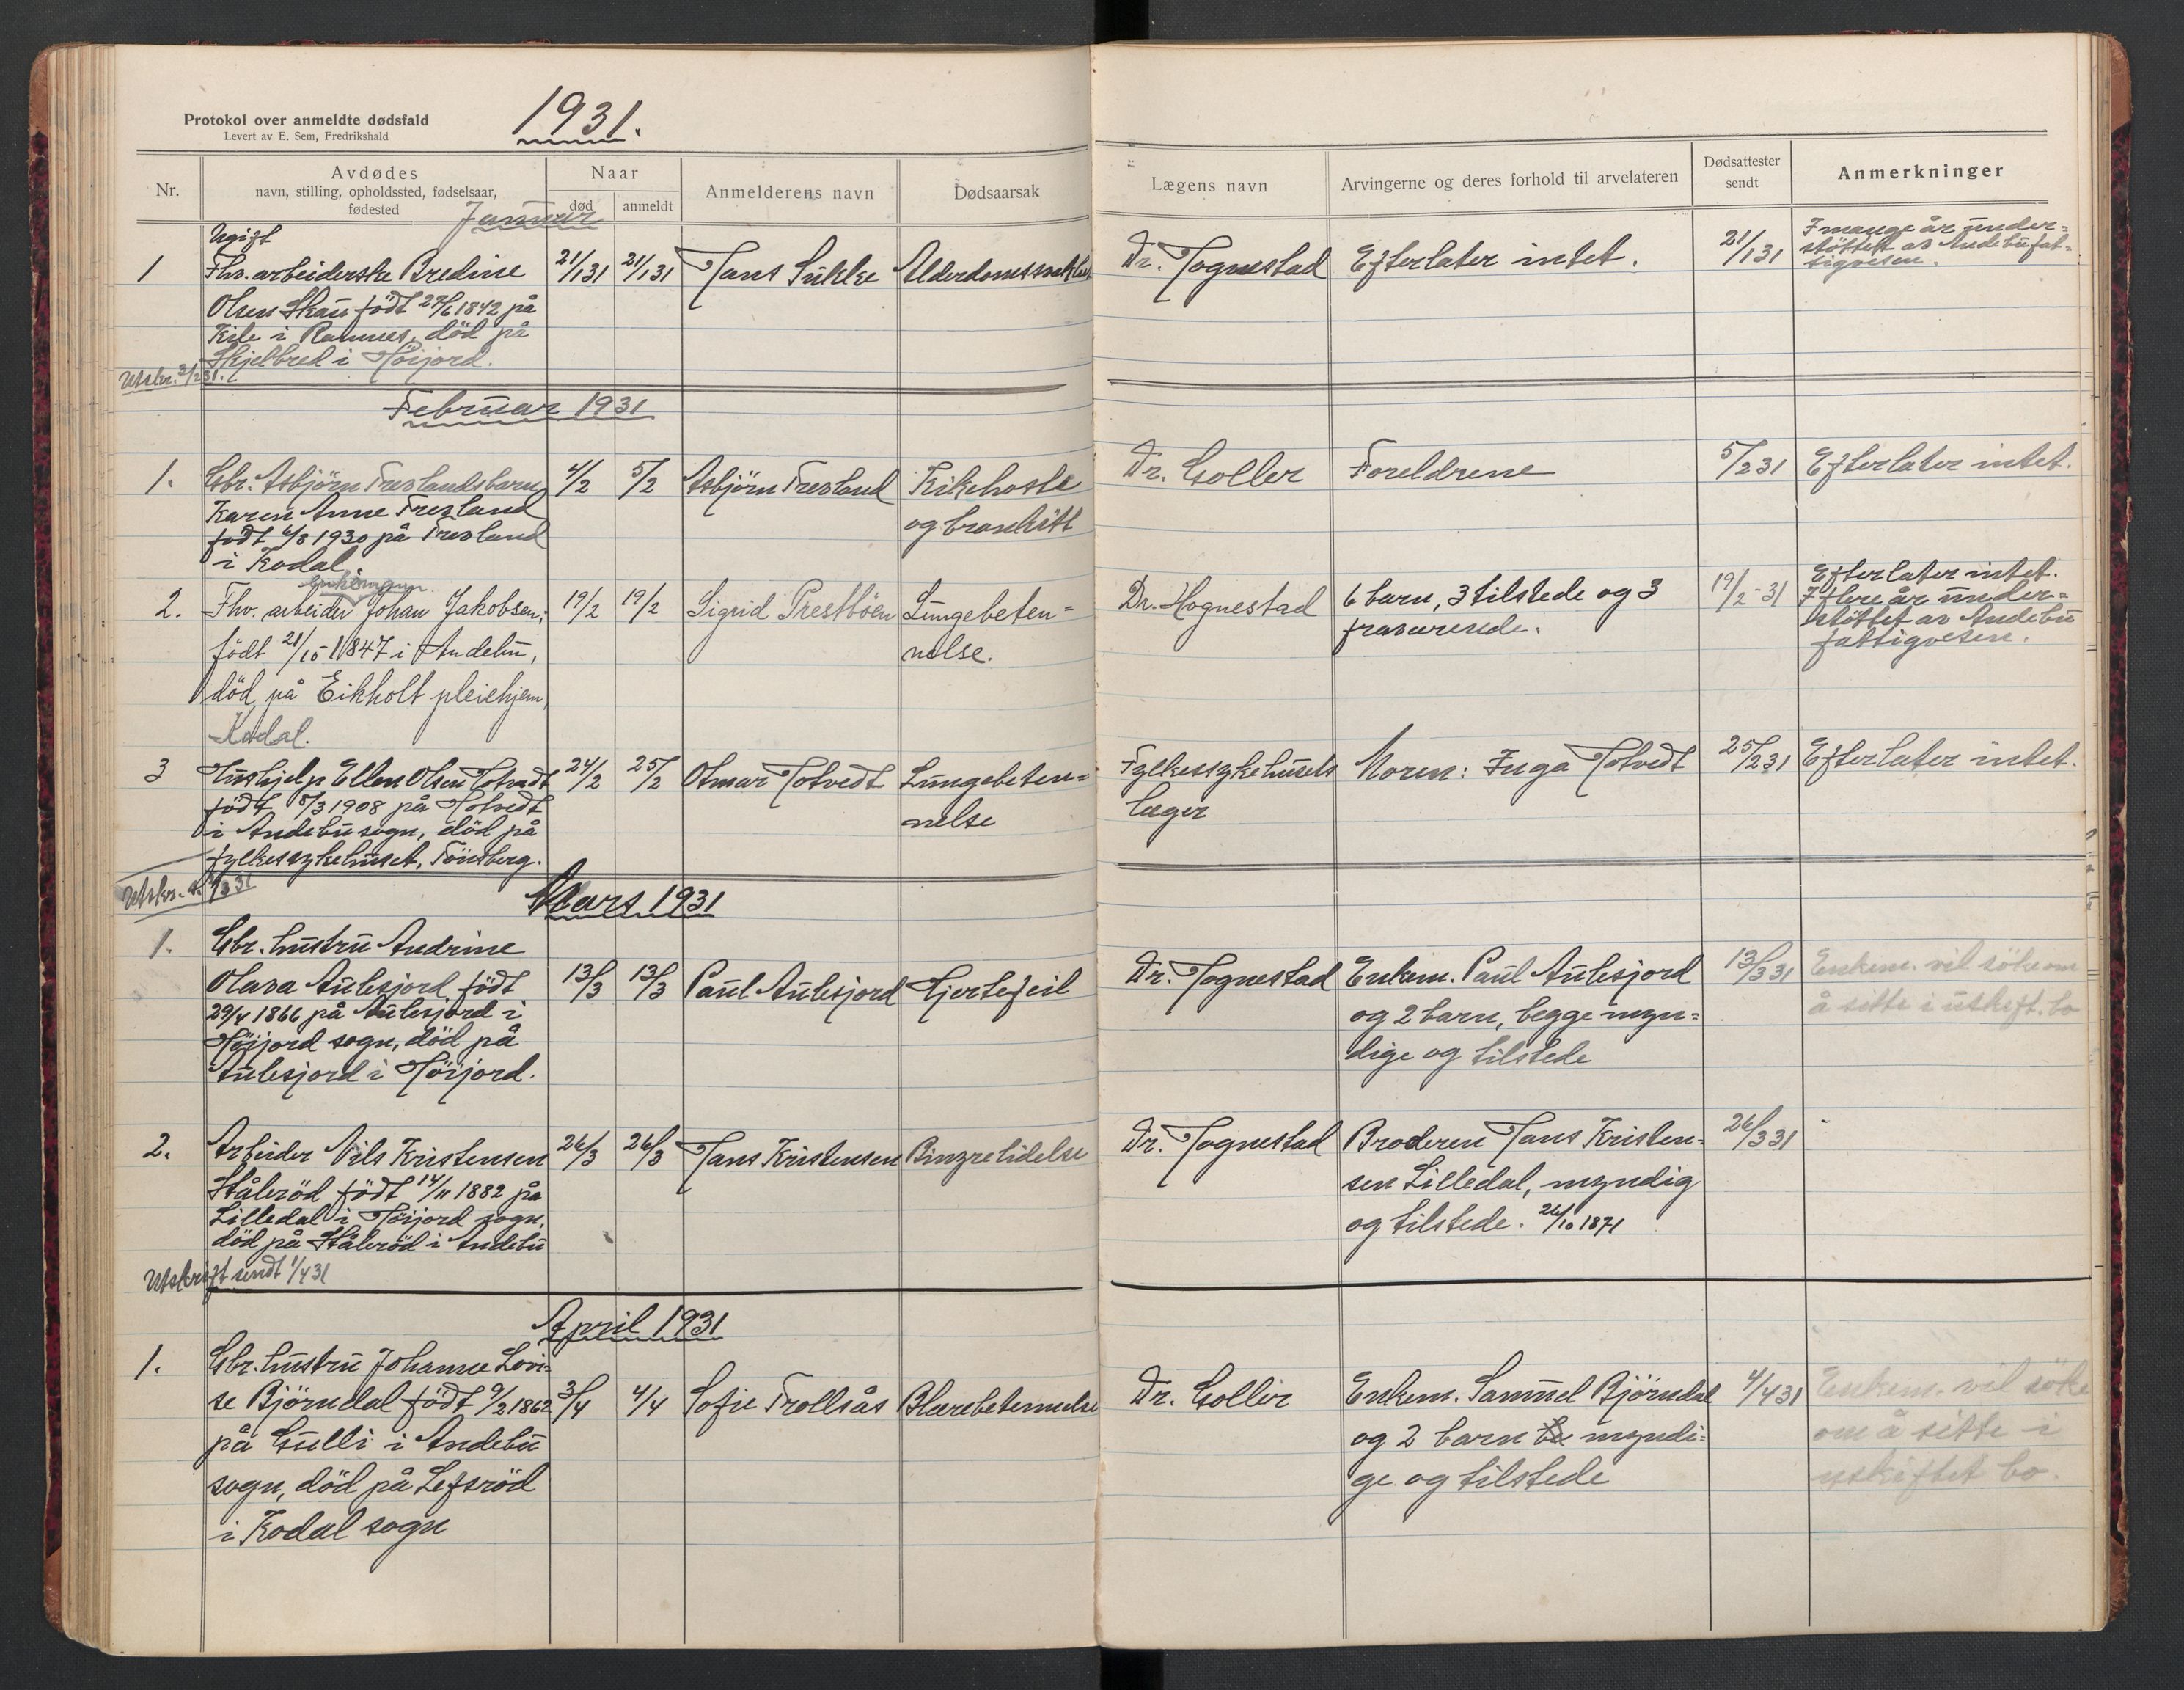 Protokol over anmeldte dødsfald
Levert av E. Sem, Fredrikshald
1931.
Nr.
Avdødes
navn, stilling, opholdssted, fødselsaar,
fødested
Naar
død
anmeldt
Anmelderens navn
Dødsaarsak
Lægens navn
Arvingerne og deres forhold til arvelateren
Dødsattester
sendt
Anmerkninger
Januar
Ugift
1 Fhv. arbeiderske Bredine 21/1 31 21/1 31 Hans Suhlke Alderdomssvakhet Dr. Hognestad Efterlater intet. 21/1 31 I mange år under=
støttet av Andebu fat-
tigvesen.
Olsen Skau født 27/6 1842 på
Kile i Ramnes, død på
Skjelbred i Høijord.
Utskr. 3/2 31.
Februar 1931
1. Gbr. Asbjørn Trevlands barn 4/2 5/2 Asbjørn Trevland Kikhoste Dr. Goller Foreldrene 5/2 31 Efterlater intet.
Karen Anne Trevland og bronkitt
født 6/8 1930 på Trevland
i Kodal.
enkemann
2. Fhv. arbeider Johan Jakobsen, 19/2 19/2 Sigrid Prestbøen Lungebeten= Dr. Hognestad 6 barn, 3 tilstede og 3 19/2-31 Efterlater intet.
I flere år under=
støttet av Andebu
fattigvesen.
født 21/15 1847 i Andebu, nelse. fraværende.
død på Eikholt pleiehjem,
Kodal.
3 Hushjelp Ellen Olsen Totvedt 24/2 25/2 Otmar Totvedt Lungebeten= Fylkessykehusets Moren: Inga Totvedt 25/2 31 Efterlater intet.
født 5/3 1908 på Totvedt nelse læger
i Andebu sogn, død på
fylkessykehuset, Tønsberg.
Utskr. 4/3 31
Mars 1931
1. Gbr. hustru Andrine
Olava Aulesjord, født 13/3 13/3 Paul Aulesjord Hjertefeil Dr. Hognestad Enkem. Paul Aulesjord 13/3 31 Enkem. vil søke om
29/4 1866 på Aulesjord i og 2 barn, begge myn= å sitte i uskift. bo
Høijord sogn, død på dige og tilstede
Aulesjord i Høijord.
2. Arbeider Nils Kristensen 26/3 26/3 Hans Kristensen Binyrelidelse Dr. Hognestad Broderen Hans Kristen= 26/3 31
Stålerød født 14/11 1882 på sen Lilledal, myndig
Lilledal i Høijord sogn, og tilstede. 26/10 1871
død på Stålerød i Andebu
Utskrift sendt 1/4 31
April 1931
1. Gbr. hustru Johanne Lovi=
se Bjørndal født 9/2 1862 3/4 4/4 Sofie Trollsås Blærebetennelse Dr. Goller Enkem. Samuel Bjørndal 4/4 31 Enkem. vil søke
på Gulli i Andebu og 2 barn myndi= om å sitte i
sogn, død på Lefsrød ge og tilstede uskiftet bo.
i Kodal sogn